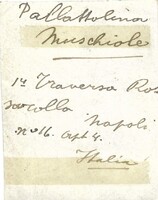 Pallattolina
Muschiole
1a Traversa Ros
sarolla Napoli
no 16. Apt 4.
Italia